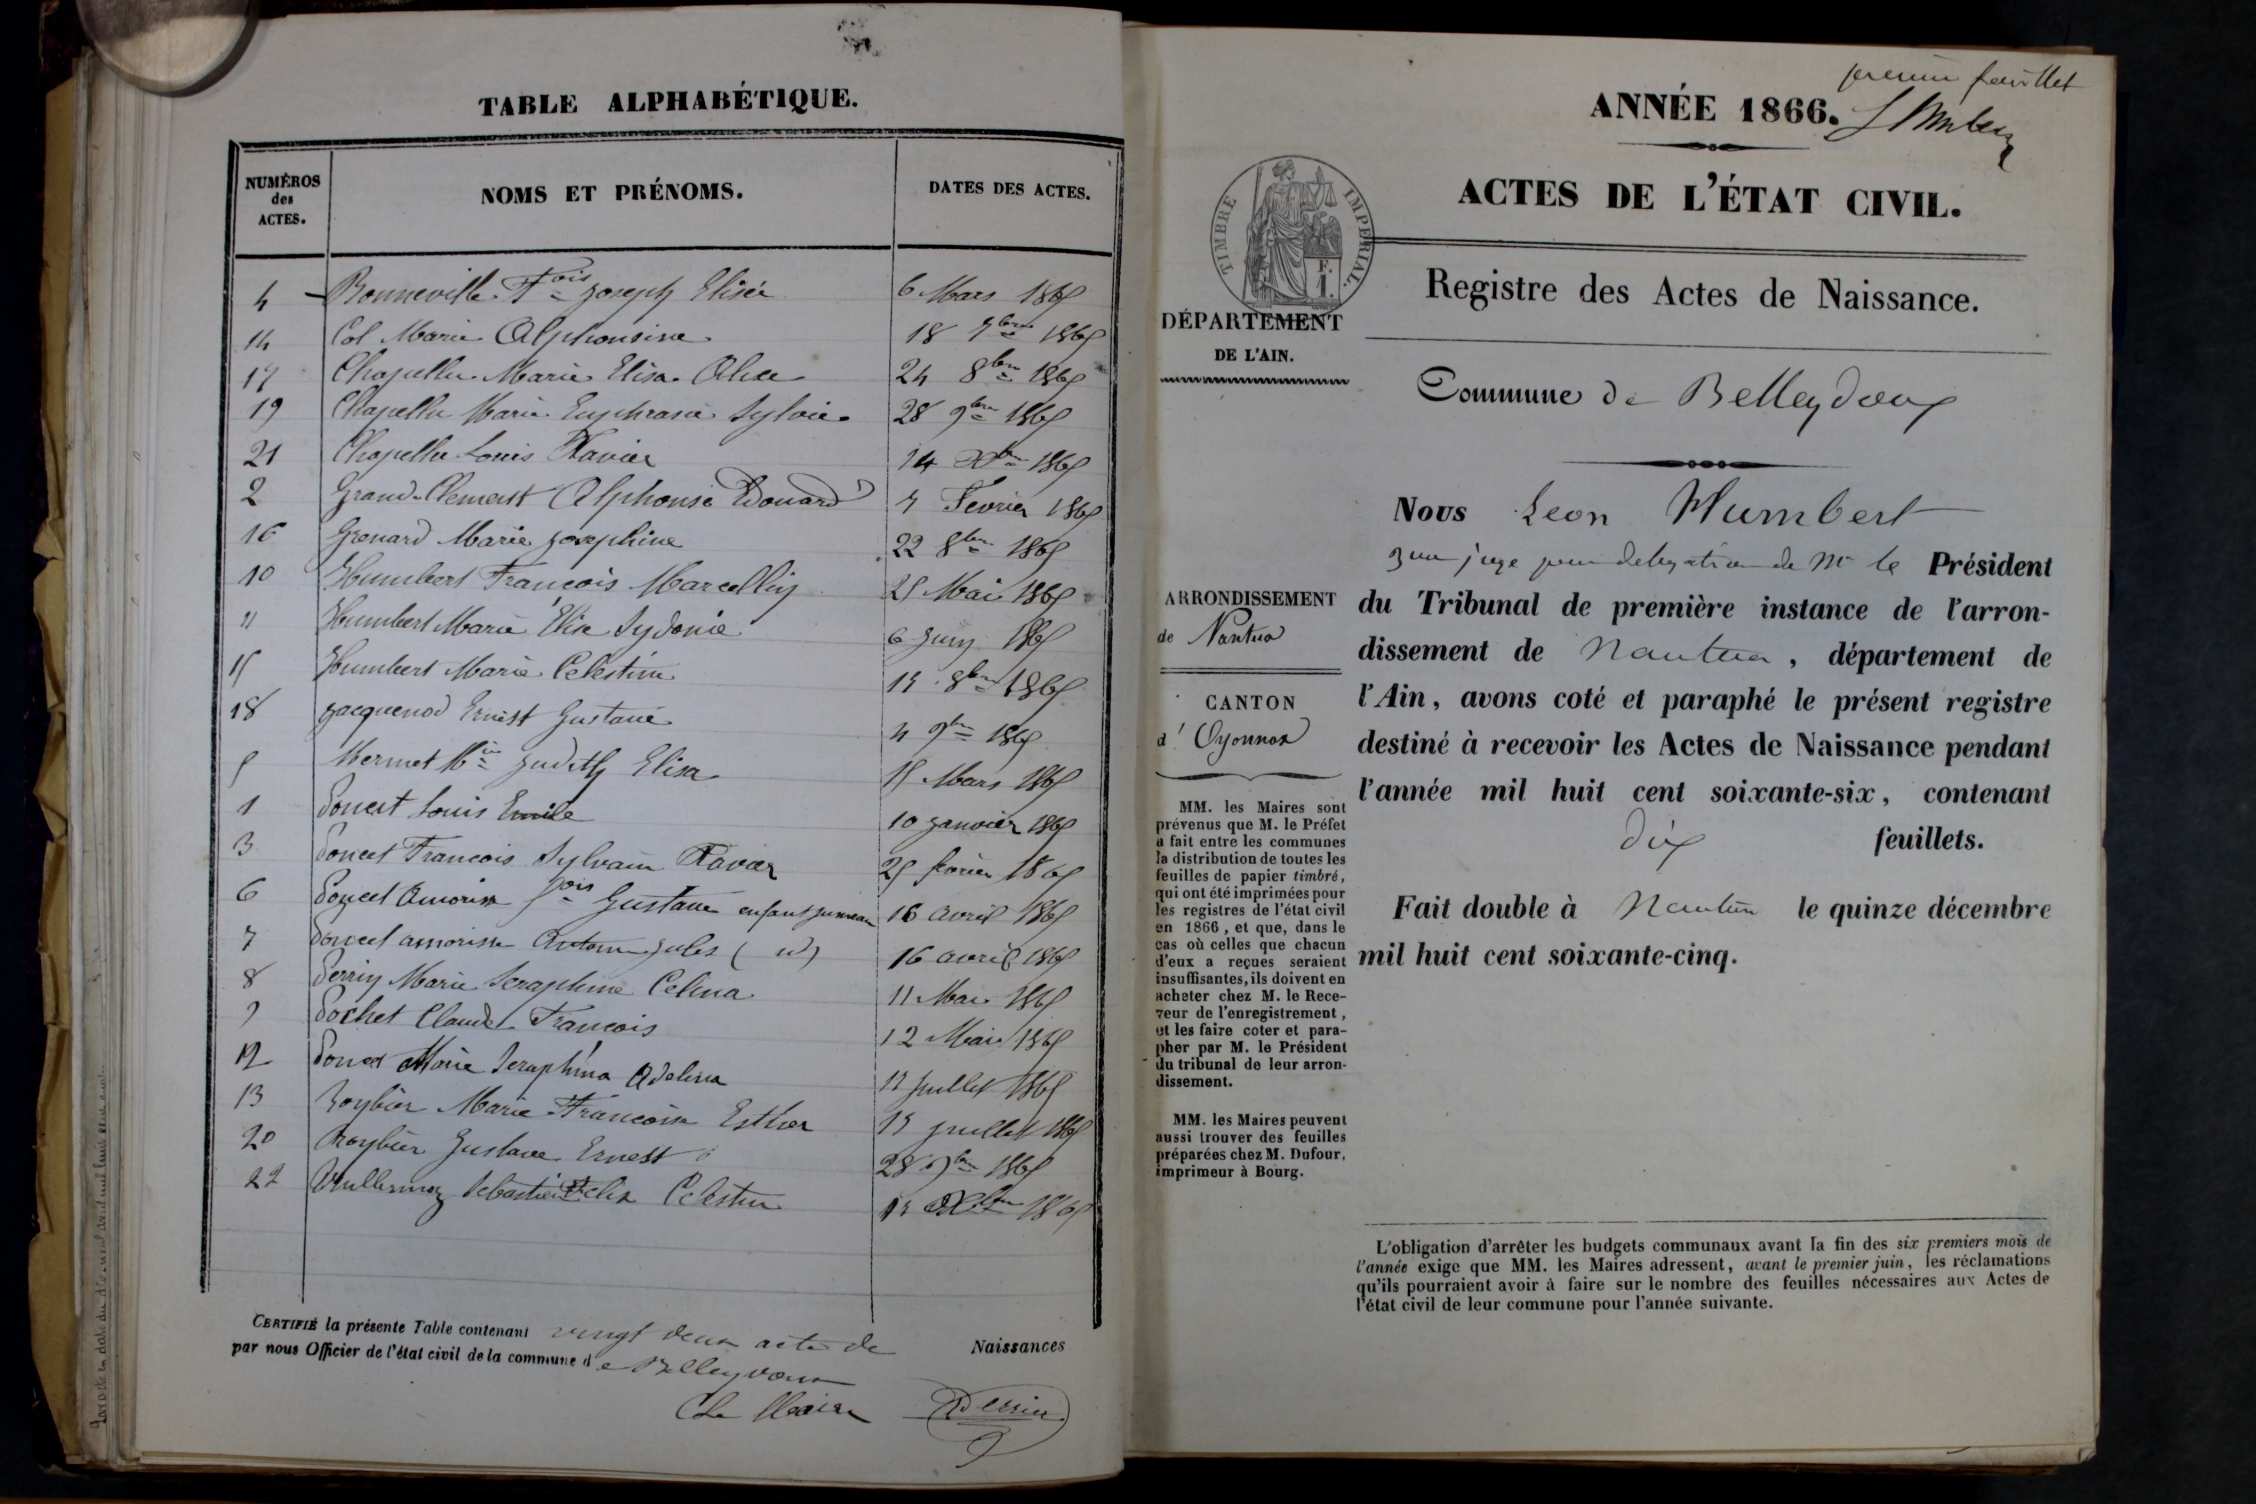 TABLE ALPHABÉTIQUE.
NUMÉROS des ACTES. NOMS ET PRÉNOMS. DATES DES ACTES.
4 Bonneville Fois Joseph Elisée 6 Mars 1865
14 Col Marie Alphonsine 18 7bre 1865
17 Chapelle Marie Elisa Alice 24 8bre 1865
19 Chapelle Marie Euphrasie Sylvie 28 9bre 1865
21 Chapelle Louis Xavier 14 Xbre 1865
2 Grand-Clement Alphonse Edouard 7 Fevrier 1865
16 Grenard Marie Josephine 22 8bre 1865
10 Humbert François Marcellin 25 Mai 1865
11 Humbert Marie Élise Sydonie 6 Juin 1865
15 Humbert Marie Celestine 15 8bre 1865
18 Jacquenod Ernest Gustave 4 9bre 1865
5 Mermet Mie Judith Elisa 15 Mars 1865
1 Poncet Louis Emile 10 Janvier 1865
3 Poncet Francois Sylvain Xavier 25 fevrier 1865
6 Poncet Amorin fois Gustave enfant jumeau 16 avril 1865
7 Poncet Antoine Jules ( id ) 16 avril 1865
8 Perrin Marie Seraphine Celina 11 Mai 1865
9 Pochet Claude Francois 12 Mai 1865
12 Poncet Marie Seraphina Adelina Juillet 1865
13 Roybier Marie Françoise Esther 15 juillet 1865
20 Roybier Gustave Ernest 28 9bre 1865
22 Vuillermoz Sebastien Felix Celestin 15 Xbre 1865
CERTIFIÉ la présente Table contenant vingt deux actes de Naissances
par nous Officier de l'état civil de la commune de Belleydoux
Le Maire
Perrin
premier feuillet
ANNÉE 1866.
L Humbert
ACTES DE L'ÉTAT CIVIL.
TIMBRE IMPÉRIAL.
F.
1.
Registre des Actes de Naissance.
DÉPARTEMENT
DE L'AIN.
Commune de Belleydoux
Nous Leon Humbert
juge par delegation de Mr le Président
du Tribunal de première instance de l'arron-
dissement de Nantua, département de
l'Ain, avons coté et paraphé le présent registre
destiné à recevoir les Actes de Naissance pendant
l'année mil huit cent soixante-six, contenant
dix feuillets.
Fait double à Nantua le quinze décembre
mil huit cent soixante-cinq.
ARRONDISSEMENT
de Nantua
CANTON
d'Oyonnax
MM. les Maires sont
prévenus que M. le Préfet
a fait entre les communes
la distribution de toutes les
feuilles de papier timbré,
qui ont été imprimées pour
les registres de l'état civil
en 1866, et que, dans le
cas où celles que chacun
d'eux a reçues seraient
insuffisantes, ils doivent en
acheter chez M. le Rece-
veur de l'enregistrement,
et les faire coter et para-
pher par M. le Président
du tribunal de leur arron-
dissement.
MM. les Maires peuvent
aussi trouver des feuilles
préparées chez M. Dufour,
imprimeur à Bourg.
L'obligation d'arrêter les budgets communaux avant la fin des six premiers mois de
l'année exige que MM. les Maires adressent, avant le premier juin, les réclamations
qu'ils pourraient avoir à faire sur le nombre des feuilles nécessaires aux Actes de
l'état civil de leur commune pour l'année suivante.